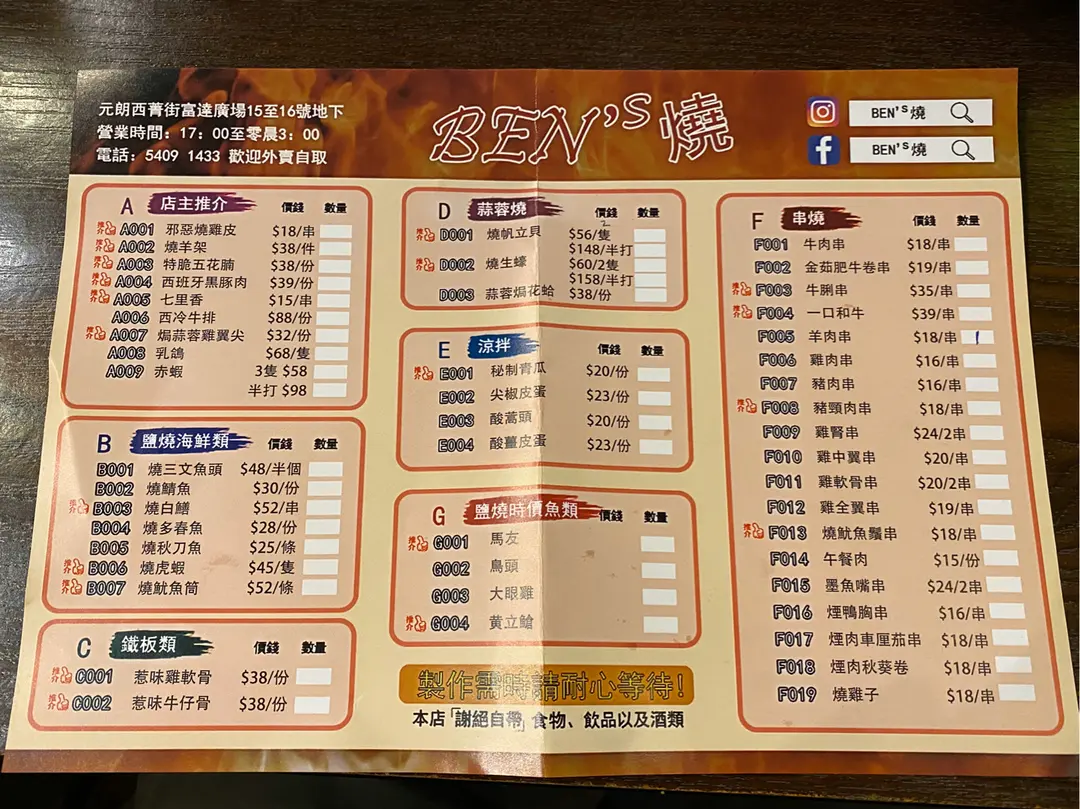 元朗西菁街富達廣場15至16號地下
營業時間: 17: 00至零晨3: 00
電話: 5409 1433 歡迎外賣自取
BEN'S燒
BEN'S燒
BEN'S燒
A 店主推介 價錢 數量
推介 A001 邪惡燒雞皮 $18/串
推介 A002 燒羊架 $38/件
推介 A003 特脆五花腩 $38/份
推介 A004 西班牙黑豚肉 $39/份
推介 A005 七里香 $15/串
A006 西冷牛排 $88/份
推介 A007 焗蒜蓉雞翼尖 $32/份
A008 乳鴿 $68/隻
A009 赤蝦 3隻 $58
半打 $98
B 鹽燒海鮮類 價錢 數量
B001 燒三文魚頭 $48/半個
B002 燒鯖魚 $30/份
推介 B003 燒白鱔 $52/串
B004 燒多春魚 $28/份
B005 燒秋刀魚 $25/條
推介 B006 燒虎蝦 $45/隻
推介 B007 燒魷魚筒 $52/條
C 鐵板類 價錢 數量
推介 C001 惹味雞軟骨 $38/份
推介 C002 惹味牛仔骨 $38/份
D 蒜蓉燒 價錢 數量
推介 D001 燒帆立貝 $56/2隻
$148/半打
推介 D002 燒生蠔 $60/2隻
$158/半打
D003 蒜蓉焗花蛤 $38/份
E 涼拌 價錢 數量
推介 E001 秘制青瓜 $20/份
E002 尖椒皮蛋 $23/份
E003 酸蕎頭 $20/份
E004 酸薑皮蛋 $23/份
G 鹽燒時價魚類 價錢 數量
推介 G001 馬友
G002 烏頭
G003 大眼雞
推介 G004 黄立鯧
製作需時請耐心等待!
本店「謝絕自帶」食物、飲品以及酒類
F 串燒 價錢 數量
F001 牛肉串 $18/串
F002 金茹肥牛卷串 $19/串
推介 F003 牛脷串 $35/串
推介 F004 一口和牛 $39/串
F005 羊肉串 $18/串 1
F006 雞肉串 $16/串
F007 豬肉串 $16/串
推介 F008 豬頸肉串 $18/串
F009 雞腎串 $24/2串
F010 雞中翼串 $20/串
F011 雞軟骨串 $20/2串
F012 雞全翼串 $19/串
推介 F013 燒魷魚鬚串 $18/串
F014 午餐肉 $15/份
F015 墨魚嘴串 $24/2串
F016 煙鴨胸串 $16/串
F017 煙肉車厘茄串 $18/串
F018 煙肉秋葵卷 $18/串
F019 燒雞子 $18/串